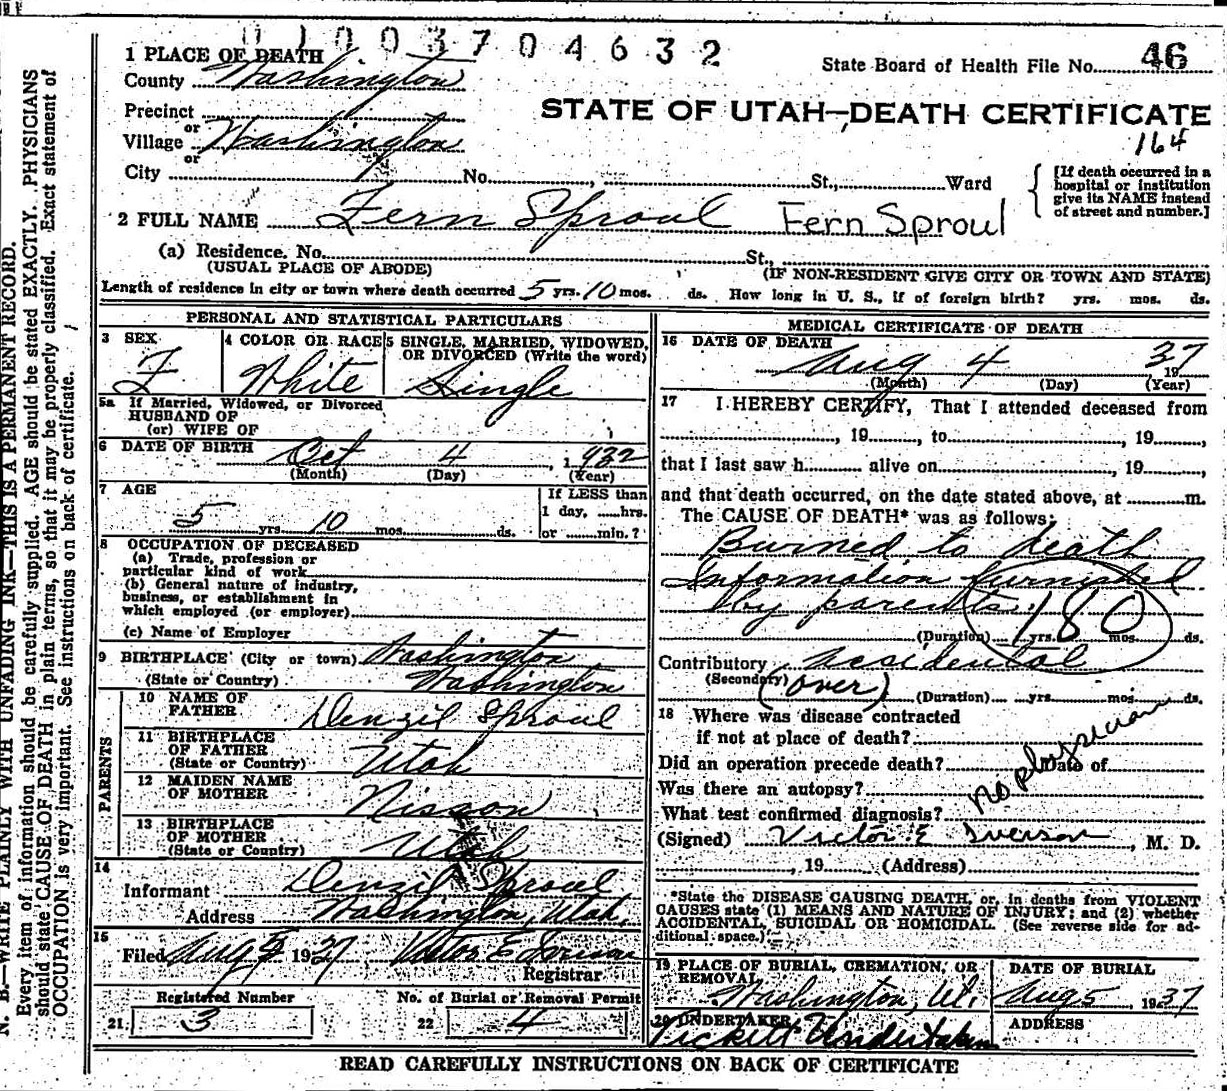 0 1 0 0 3 7 0 4 6 3 2
1 PLACE OF DEATH
County Washington
State Board of Health File No. 46
Precinct
STATE OF UTAH—DEATH CERTIFICATE
or
Village Washington
164
or
City No. St., Ward
[If death occurred in a hospital or institution give its NAME instead of street and number.]
2 FULL NAME Fern Sproul Fern Sproul
(a) Residence. No. St.,
(USUAL PLACE OF ABODE) (IF NON-RESIDENT GIVE CITY OR TOWN AND STATE)
Length of residence in city or town where death occurred 5 yrs. 10 mos. ds. How long in U. S., if of foreign birth? yrs. mos. ds.
PERSONAL AND STATISTICAL PARTICULARS
3 SEX 4 COLOR OR RACE 5 SINGLE, MARRIED, WIDOWED, OR DIVORCED (Write the word)
F White Single
5a If Married, Widowed, or Divorced
HUSBAND OF
(or) WIFE OF
6 DATE OF BIRTH Oct 4, 1932
(Month) (Day) (Year)
7 AGE
If LESS than
1 day, ......hrs.
5 yrs. 10 mos. ds. or ........min.?
8 OCCUPATION OF DECEASED
(a) Trade, profession or
particular kind of work
(b) General nature of industry,
business, or establishment in
which employed (or employer)
(c) Name of Employer
9 BIRTHPLACE (City or town) Washington
(State or Country) Washington
PARENTS
10 NAME OF FATHER Denzil Sproul
11 BIRTHPLACE OF FATHER (State or Country) Utah
12 MAIDEN NAME OF MOTHER Nisson
13 BIRTHPLACE OF MOTHER (State or Country) Utah
14
Informant Denzil Sproul
Address Washington, Utah.
15
Filed Aug 5 1937 Victor E Iverson
Registrar
Registered Number No. of Burial or Removal Permit
21 3 22 4
MEDICAL CERTIFICATE OF DEATH
16 DATE OF DEATH
Aug 4 1937
(Month) (Day) (Year)
17 I HEREBY CERTIFY, That I attended deceased from
, 19........, to, 19........,
that I last saw h........... alive on, 19........,
and that death occurred, on the date stated above, at ............m.
The CAUSE OF DEATH* was as follows:
Burned to death
Information furnished
by parents. 180
(Duration) yrs. mos. ds.
Contributory Accidental
(Secondary) (over) (Duration) yrs. mos. ds.
18 Where was disease contracted
if not at place of death?
Did an operation precede death? Date of
Was there an autopsy?
What test confirmed diagnosis? no physician
(Signed) Victor E Iverson, M. D.
, 19 (Address)
*State the DISEASE CAUSING DEATH, or, in deaths from VIOLENT
CAUSES state (1) MEANS AND NATURE OF INJURY; and (2) whether
ACCIDENTAL, SUICIDAL OR HOMICIDAL. (See reverse side for ad-
ditional space.)
19 PLACE OF BURIAL, CREMATION, OR REMOVAL DATE OF BURIAL
Washington, Ut. Aug 5 1937
20 UNDERTAKER ADDRESS
Pickett Undertaken
READ CAREFULLY INSTRUCTIONS ON BACK OF CERTIFICATE
N. B.—WRITE PLAINLY WITH UNFADING INK—THIS IS A PERMANENT RECORD.
Every item of information should be carefully supplied. AGE should be stated EXACTLY. PHYSICIANS
should state CAUSE OF DEATH in plain terms, so that it may be properly classified. Exact statement of
OCCUPATION is very important. See instructions on back of certificate.